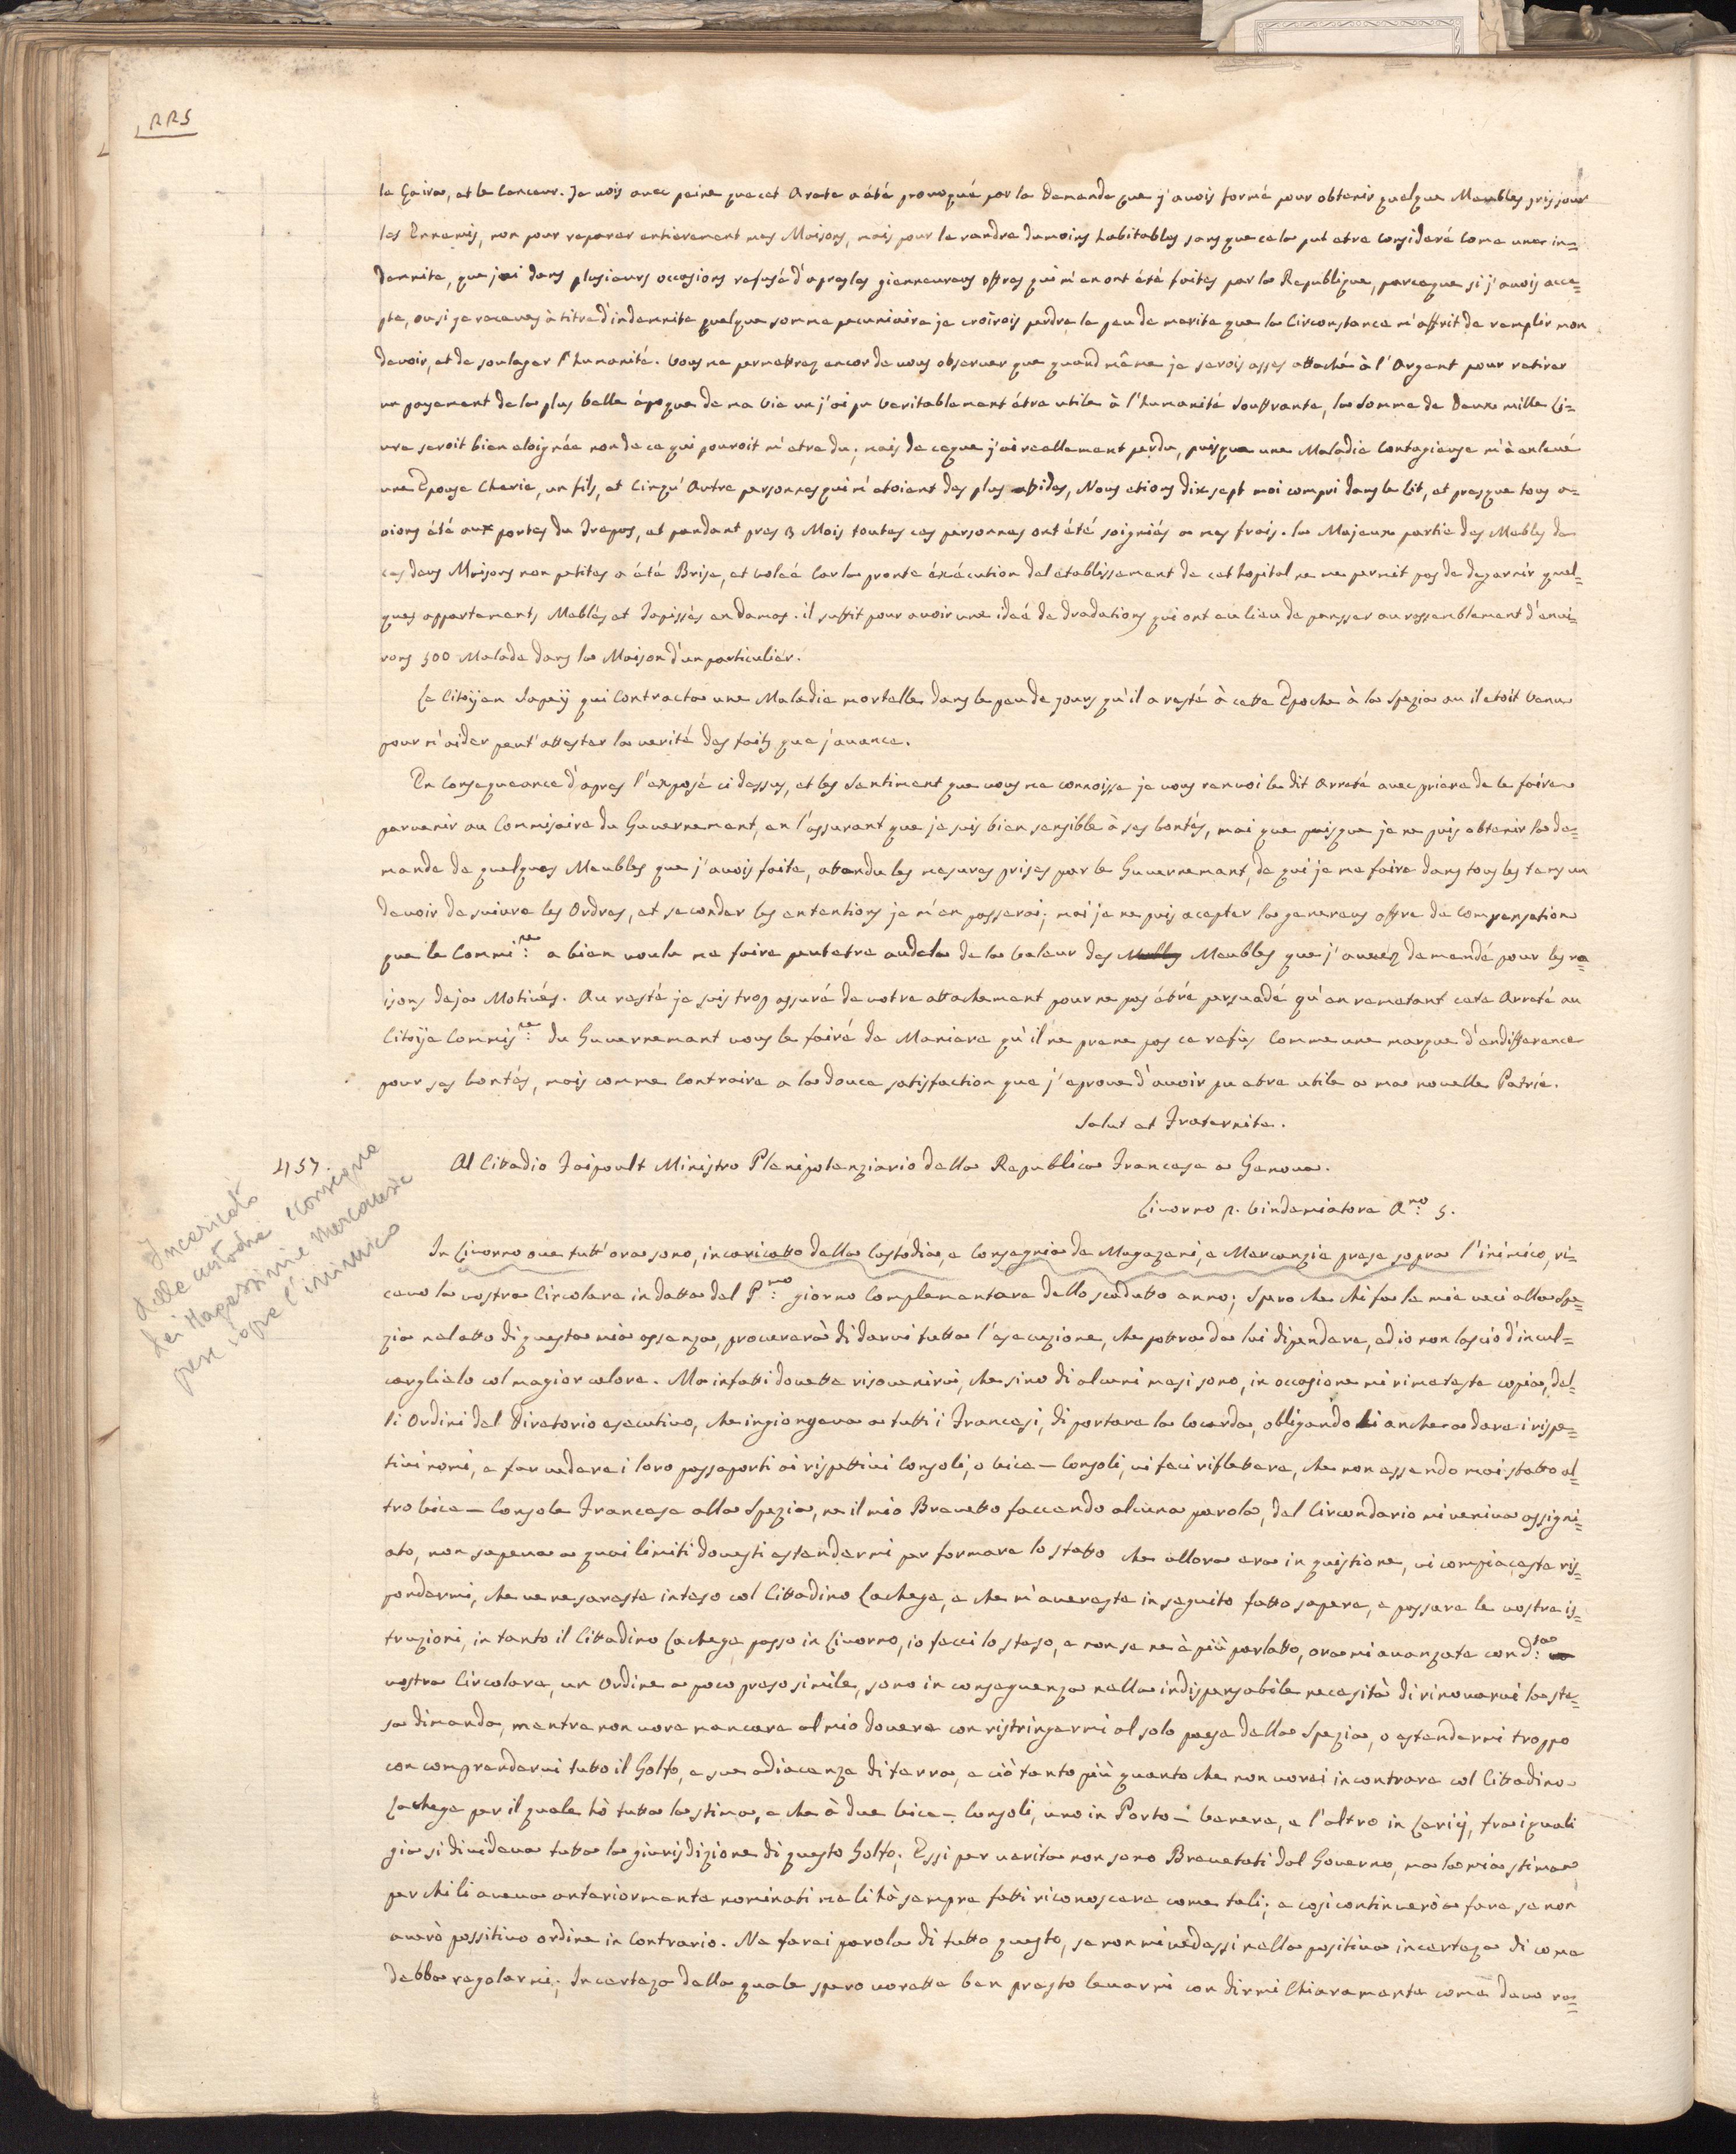 RRS
le Zaira, et le Lanceur. Je vois avec peine que cet Arete a été provoqué par la demande que j'avois formé pour obtenir quelque Meubles pris sour
les Ennemis, non pour reparer entierement mes Maisons, mais pour le randre dumoins habitables sans que cela put etre Consideré Come une in=
demnite, que j'ai dans plusieurs occasions refusé d'apres les giennereus offres qui m'en ont été faites par la Republique, parceque si j'avois acce=
pte, ou si je receves à titre d'indemnite quelque somme pecuniaire je croirois perdre le peu de merite que la Circonstance m'offrit de remplir mon
devoir, et de soulager l'humanité. Vous me permettrez encor de vous observer que quand même je serois asses attaché à l'Argent pour retirer
un payement de la plus belle époque de ma Vie un j'ai pu Veritablement étre utile à l'humanité Souffrante, la Somme de Deux mille Li=
vre seroit bien eloignée non de ce qui pouroit m'etre du; mais de ceque j'ai reellement perdu, puisque une Maladie Contagieuse m'à enlevé
une Epouse Cherie, un fils, et Cinqu' Autre personnes qui m'etoient des plus Afides, Nous etions dix sept moi compri dans le Lit, et presque tous a=
vions été aux portes du Trepas, et pendant pres 3 Mois toutes ces personnes ont été soigniés a mes frais. La Majeux partie des Mebles de
ces deus Maisons non petites a été Brise, et Voleé Car la pronte éxécution del etablissement de cet hopital ne me permit pas de dezarnir quel=
ques appartements Meblés et Tapissés en damas. il suffit pour avoir une idée de dradations qui ont eu lieu de pansser au rassemblement d'envi=
rons 500 Malade dans la Maison d'un particulier.
Le Citoijen Sapeÿ qui Contracta une Maladie mortelle dans le peu de jours qu'il a resté à cette Epoche à la Spezia ou il etoit Venu
pour m'aider peut' attester la verité des faits que j'avance.
En Consequeance d'apres l'exposé ci dessus, et les Sentiment que vous me connoisse je vous renvoi le dit Arreté avec priere de le faire
parvenir au Commisaire du Guvernement, en l'assurant que je suis bien sensible à ses bontés, mai que puisque je ne puis obtenir la de=
mande de quelques Meubles que j'avois faite, atendu les mesures prises par le Guvernemant, de qui je me faire dans tous les tems un
devoir de suivre les Ordres, et seconder les entention je m'en passerai; mai je ne puis acepter la genereus offre de Compensation
que le Commi:re a bien voulu me faire peutetre audela de la Valeur des Meubles Meubles que j'avez demandé pour les ra=
isons deja Motivés. Au resté je suis trop assuré de votre attachemant pour ne pas étre persuadé qu'en remetant cete Arreté au
Citoije Commis:re du Guvernemant vous le fairé de Maniere qu'il ne prene pas ce refus Comme une marque d'endifferance
pour ses bontés, mais comme Contraire a la douce satisfaction que j'eprove d'avoir pu etre utile a ma nouvelle Patrie.
Salut et Fraternite.
457.
Incaricato
delle custodia e consegna
dei Magazzini e Mercanzie
prese sopra l'inimico
Al Cittadio Faipoult Ministro Plenipotenziario della Republica Francese a Genova.
Livorno p. Vindemiatore A:no 5.
In Livorno ove tutt'ora sono, incaricatto della Custódia, e Consegnia de Magazeni, e Mercanzie prese sopra l'inimico, ri=
cevo la vostra Circolare in datta del P:mo giorno Complementare dello scadutto anno; Spero che chi fa le mie veci alla Spe=
zia nel atto di questa mia assenza, procurerà di darvi tutta l'esecuzione, che potra da lui dipendere, ed io non lascio d'incul=
carglielo col magior calore. Ma infatti dovette risovenirvi, che sino di alcuni mesi sono, in occasione mi rimeteste copia, del=
li Ordini del Diretorio esecutivo, che ingiongeva a tutti i Francesi, di portare la Cocarda, obligandoli anche a dare i rispe=
tivi nomi, e far vedere i loro passaporti ai rispettivi Consoli, o Vice - Consoli, vi feci riflettere, che non essendo mai statto al=
tro Vice - Console Francese alla Spezia, ne il mio Brevetto faccendo alcuna parola, del Circondario mi veniva assigni=
ato, non sapeva a quai limiti dovesti estendermi per formare lo statto che allora era in quistione, vi compiaceste ris=
pondermi, che ve ne sareste inteso col Cittadino Lachege, e che m'avereste in seguito fatto sapere, e passare le vostre is=
truzioni, in tanto il Cittadino Lachege passo in Livorno, io facci lo steso, e non se ne à più parlatto, ora mi avanzate con d:ta
vostra Circolare, un Ordine a poco preso simile, sono in conseguenza nella indispensabile necesità di rinovarvi la ste=
sa dimanda, mentre non vore mancare al mio dovere con ristringermi al solo paese della Spezia, o estendermi troppo
con comprendervi tutto il Golfo, e sue adiacenze di terra, e ciò tanto più quanto che non vorei incontrare col Cittadino
Lachege per il quale hò tutta la stima, e che à due Vice - Consoli, uno in Porto - Venere, e l'altro in Lerici, fra i quali
gia si divideva tutta la giurisdizione di questo Golfo; Essi per verita non sono Brevetati dal Governo, ma la mia stima
per chi li aveva anteriormente nominati me li hà sempre fatti riconoscere come tali; e cosi continuerò a fare se non
averò possitivo ordine in Contrario. Ne farei parola di tutto questo, se non mi vedessi nella positiva incerteza di come
debba regolarmi; Incerteza della quale spero vorette ben presto levarmi con dirmi Chiaramente come devo re=